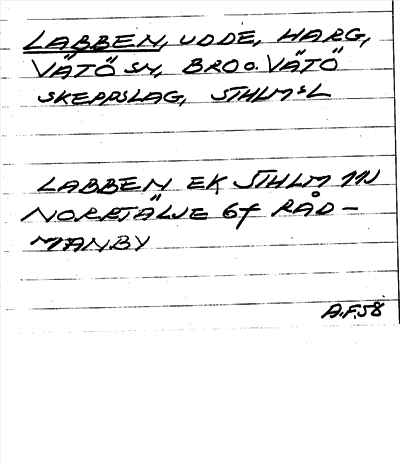 LABBEN, UDDE, HARG,
VÄTÖ SN, BRO O. VÄTÖ
SKEPPSLAG, STHLMS L
LABBEN EK STHLM 11N
NORRTÄLJE 6f RÅD-
MANBY
A.F.58